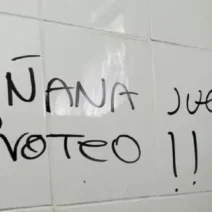 ÑANA JUE
VOTEO !!